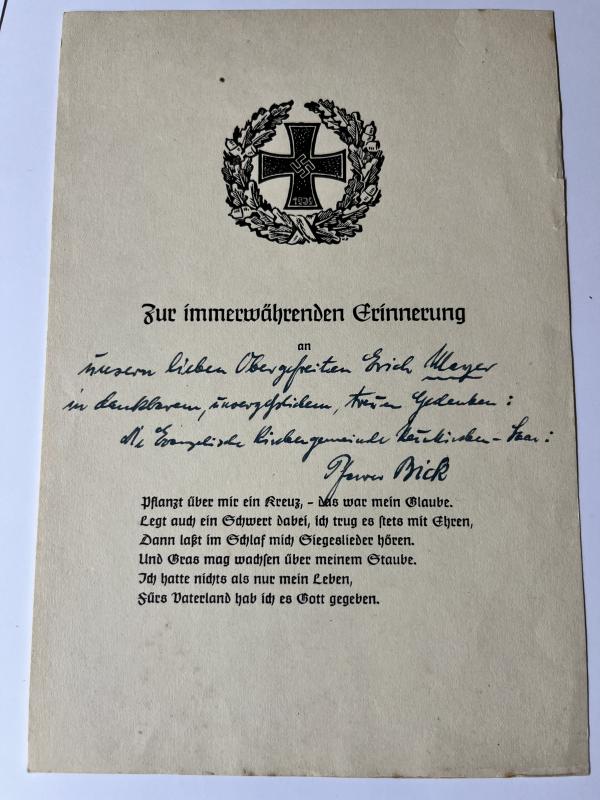 1939
Zur immerwährenden Erinnerung
an
unsern lieben Obergefreiten Erich Meyer
in dankbarem, unvergeßlichem, treuem Gedenken:
die Evangelische Kirchengemeinde Neunkirchen-Saar:
Pfarrer Bick
Pflanzt über mir ein Kreuz, - das war mein Glaube.
Legt auch ein Schwert dabei, ich trug es stets mit Ehren,
Dann laßt im Schlaf mich Siegeslieder hören.
Und Gras mag wachsen über meinem Staube.
Ich hatte nichts als nur mein Leben,
Fürs Vaterland hab ich es Gott gegeben.